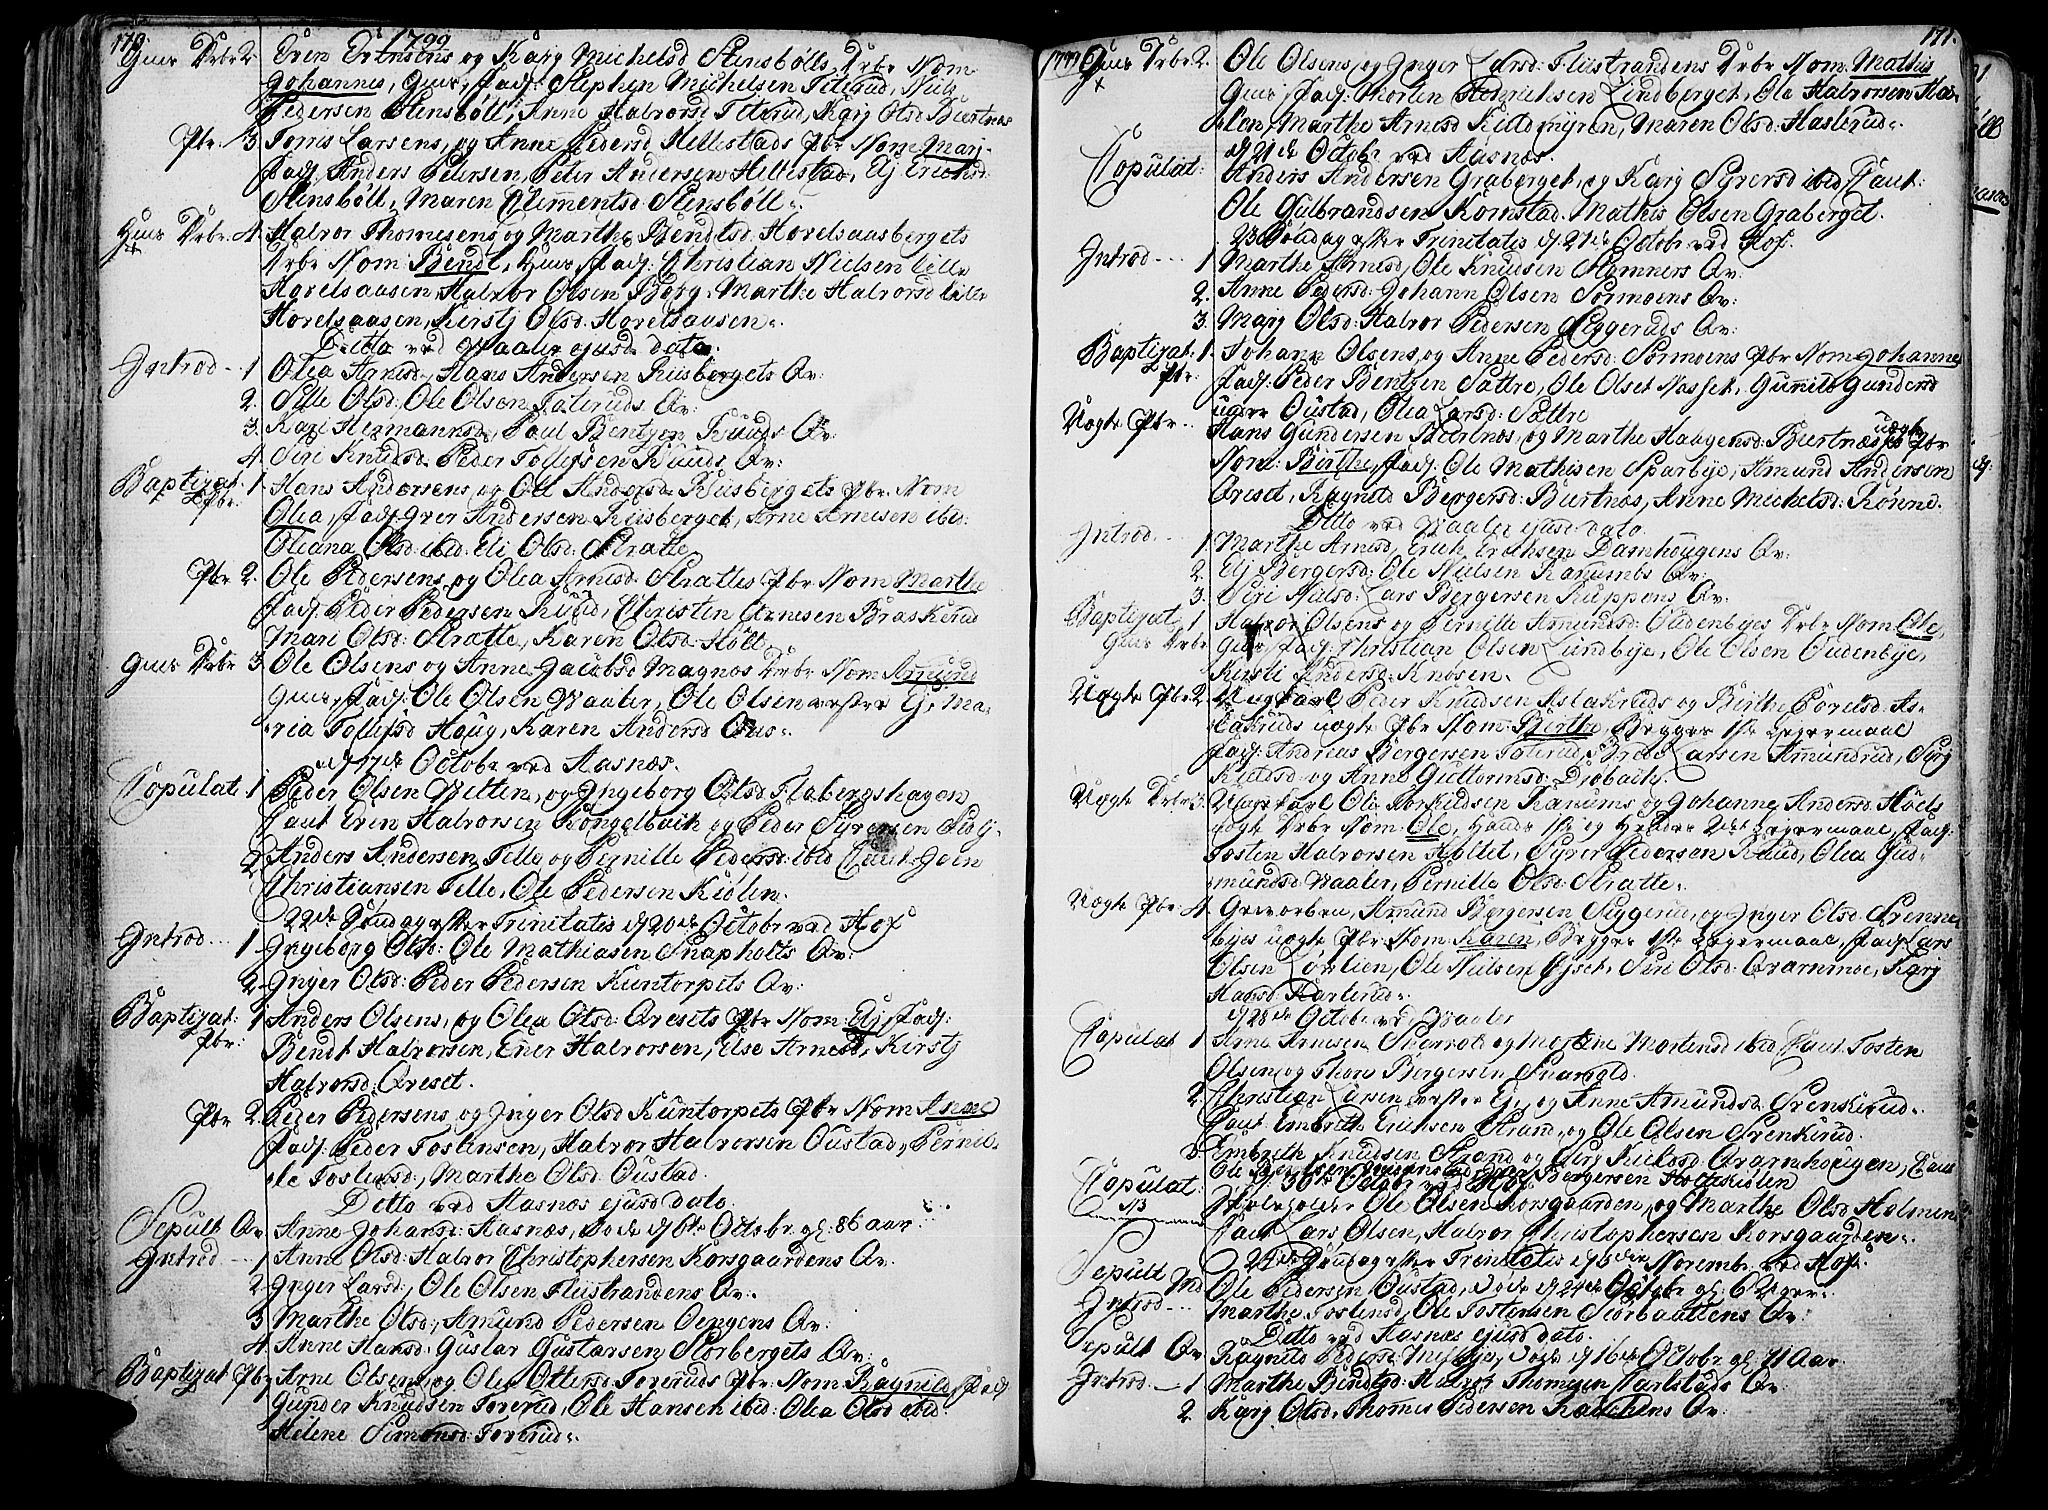 170.
1799
Gius Drbr 2. Even Evensens og Karj Michelsd Stensbölls Drbr Nom
Johannes, Gius, Fad: Stephen Michelsen Titerud, Nils
Pedersen Stensböll, Anne Halvorsd Titerud, Karj Olsd Biertnæs
Pbr. 3. Torris Larsens, og Anne Pedersd Hellestads Pbr Nom: Marj
Fad: Anders Petersen, Peter Andersen Hellestad, Elj Erichsd:
Stensböll, Maren Clementsd Stensböll.
Gius Drbr. 4. Halvor Thomesens og Marthe Bendtsd: Hovelsaasbergets
Drbr Nom: Bendt, Gius, Fad: Christian Nielsen lille
Hovelsaasen, Halvor Olsen Berg, Marthe Halvorsd lille
Hovelsaasen, Kirstj Olsd: Hovelsaasen.
Ditto ved Waaler ejusd: dato.
Introd 1 Olea Arnesd, Hans Andersen Riisbergets Qv:
2. Sille Olsd: Ole Olsen Tateruds Qv:
3. Kari Hermannsd, Poul Bentzen Ruuds Qv:
4 Siri Knudsd Peder Tollefsen Ruuds Qv:
Baptizat. 1. Hans Andersens og Ole Andersd Riisbergets Pbr. Nom
Pbr: Olea, Fad: Iver Andersen Riisberget, Arne Arnesen ibid:
Oleana Olsd: ibid: Eli Olsd: Stratte
Pbr 2. Ole Pedersens og Olea Arnesd Strattes Pbr Nom Marthe
Fad: Peder Pedersen Ruud, Christen Arnesen Braskerud
Mari Olsd: Stratte, Karen Olsd Holt.
Gius Drbr 3. Ole Olsens og Anne Jacobsd Magnos Drbr Nom Amund
Gius, Fad: Ole Olsen Waaler, Ole Olsen vestre Ej, Ma-
ria Tollefsd Houg, Karen Andersd
d 17de Octobr ved Aasnæs.
Copulat. 1 Peder Olsen Velten, og Ingeborg Olsd: Flabergshagen
Caut Even Halvorsen Kongelbaek og Peder Syversen
2. Anders Andersen Telle og Pernille Pedersd: ibid Caut: Joen
Christiansen Telle, Ole Pedersen Kiölen.
22de Söndag efter Trinitatis d 20de Octobr ved Hof
Introd... 1. Ingeborg Olsd: Ole Mathiasen Snapholts Qv:
2. Inger Olsd: Peder Pedersen Kuntorpets Qv:
Baptizat: 1 Anders Olsens, og Olea Olsd: Qvesets Pbr Nom: Elj, Fad:
Pbr: Bendt Halvorsen, Ener Halvorsen, Else Arnesd, Kirstj
Halvorsd: Qveset.
Pbr 2. Peder Pedersens, og Inger Olsd Kuntorpets Pbr Nom Anne
Fad: Peder Tostensen, Halvor Halvorsen Oustad, Pernil-
le Tostensd, Marthe Olsd Oustad.
Ditto ved Aasnæs ejusd dato.
Sepult Qv Anne Johansd: Aasnæs, död d 6te Octobr. gl: 86 aar
Introd 1 Anne Olsd: Halvor Christophersen Korsgaardens Qv.
2. Inger Larsd: Ole Olsen Fleistrandens Qv.
3 Marthe Olsd: Amund Pedersen Oengens Qv:
4. Anne Hansd: Gustav Gustavsen Storbergets Qv:
Baptizat Pbr 1 Arne Olsens, og Olea Ottersd: Foseruds Pbr. Nom. Ragnild, Fad:
Gunder Knudsen Foserud, Ole Hansen ibid: Olea Olsd ibid:
Helene Simonsd: Foserud.
171.
1799 Gius Drbr 2. Ole Olsens, og Inger Larsd: Fleistrandens Drbr Nom: Mathis
Gius, Fad: Morten Hendrichsen Lindberget, Ole Halvorsen Ha-
len, Marthe Arnesd Kieldmyren, Maren Olsd: Haslerud.
d 21de Octobr ved Aasnæs.
Copulat: Anders Andersen Graberget, og Karj Syversd ibid Caut:
Ole Gulbrandsen Komstad. Mathis Olsen Graberget.
23 Söndag efter Trinitatis d 27de Octobr ved Hof.
Introd 1 Marthe Arnesd, Ole Knudsen Qv:
2. Anne Pedersd: Johann Olsen Sormoens Qv:
3. Marj Olsd: Halvor Pedersen Eggeruds Qv:
Baptizat. 1. Johann Olsens, og Anne Pedersd: Sormoens Pbr Nom: Johanne
Pbr: Fad: Peder Bentzen Sættre, Ole Olset Nasset, Gunild Gundersd
Oustad, Olea Larsd: Sættre
Uægte Pbr Hans Gundersen Biertnes, og Marthe Haagensd: Biertnæs uægte Pbr
Nom: Birthe, Fad: Ole Mathisen Sparbye, Amund Andersen
Qveset, Ragnild Bergersd: Biertnæs, Anne Michelsd: Rönne.
Ditto ved Vaaler ejusd dato.
Introd. 1. Marthe Arnesd, Erich Erichsen Damhougens Qv:
2. Elj Bergersd: Ole Nielsen Qv:
3. Siri Nilsd: Lars Bergersen Kuppens Qv:
Baptizat 1 Halvor Olsens og Pernille Amundsd: Oudenbyes Drbr Nom: Ole
Gius Drbr Gius, Fad: Christian Olsen Lundbye, Ole Olsen Oudenbye,
Kirsti Andersd: Knosen.
Uægte Pbr 2. Ungkarl Peder Knudsen Aslakruds og Birthe Povelsd: As-
lakruds uægte Pbr Nom: Birthe, Begges 1ste Leyermaal
Fad: Andreas Bergersen Taterud, Brede Larsen Amundrud, Syrg
og Anne Guttormsd:
Uægte Drbr 3. Ungkarl Ole og Johanne Andersd Höels
uægte Drbr Nom: Ole, Hands 1ste og Hendes 2det Leyermaal, Fad:
Tosten Halvorsen Holtet, Syver Pedersen Ruud, Olea Gud-
mundsd Vaaler, Pernille Olsd: Stratte.
Uægte Pbr 4. Geworben, Amund Bergersen Siggerud, og Inger Olsd Svenne-
byes uægte Pbr Nom: Karen, Begges 1ste Leyermaal, Fad: Lars
Olsen Lövlien, Ole Nielsen Ejset, Siri Olsd: Qvarnmoe, Karj
Hansd:
d 28de Octobr ved Vaaler
Copulat 1 Arne Arnesen og Mortensd ibid Caut Tosten
Olsen og Thore Bergersen
2 Christian Larsen vestre Ej, og Anne Amundsd: Svenkerud.
Caut Embreth Erichsen Strand, og Ole Olsen Svenkerud.
3 Embreth Knudsen Strand og Qvarnhougen, Caut
Ole Bergersen
d 30te Octobr ved Hof
Copulat: Skoleholder Ole Olsen Korsgaarden, og Marthe Olsd Holmen
Caut Lars Olsen, Halvor Christophersen Korsgaarden.
24de Söndag efter Trinitatis d 3die Novembr ved Hof
Sepult Md Ole Pedersen Oustad, död d 24de Octobr gl: 6 Uger.
Introd Marthe Tostensd, Ole Tostensen Storbaattens Qv:
Ditto ved Aasnæs ejusd dato.
Sepult Qv Ragnild Pedersd död d 16de Octobr gl: 71 Aar
Introd 1 Marthe Bendtsd: Halvor Thomesen Karlstads Qv:
2. Karj Olsd, Thomes Pedersen Qv: